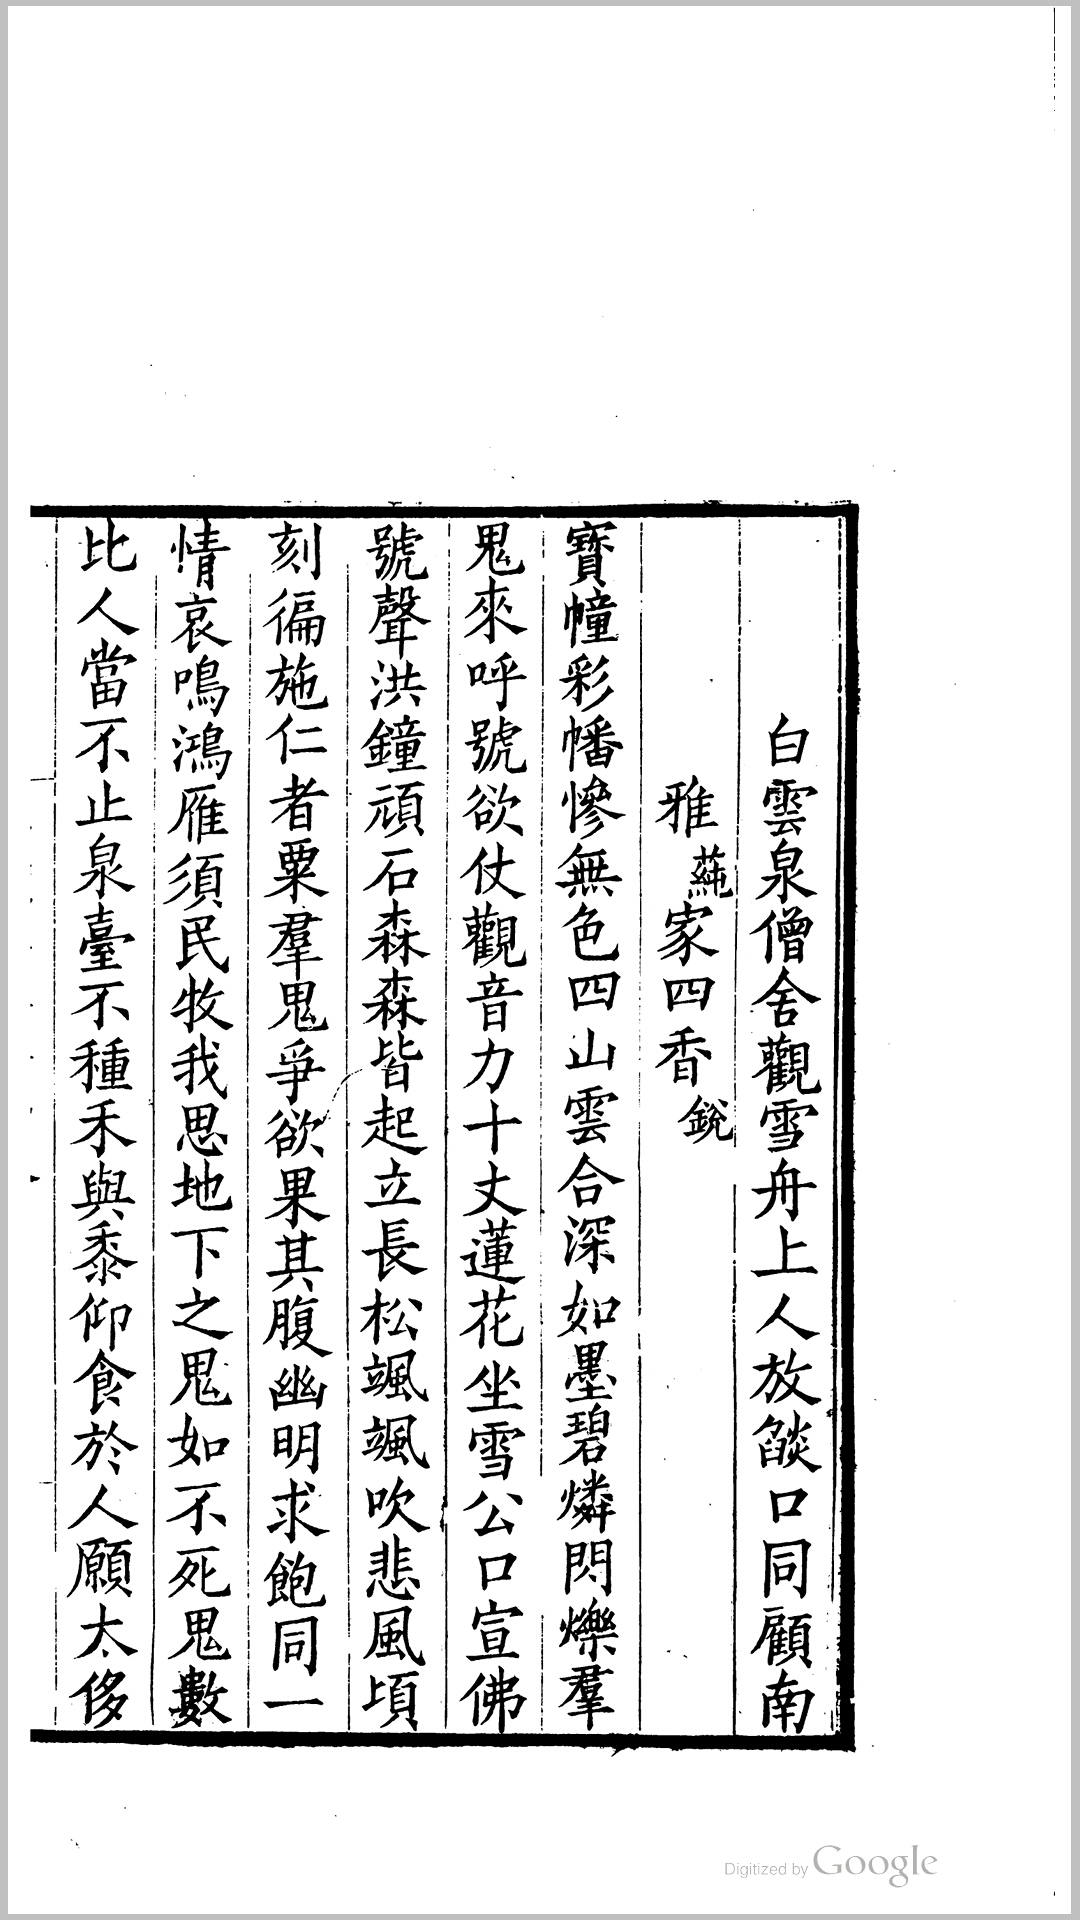 白雲泉僧舍觀雪舟上人放燄口同顧南
雅蒓家四香銳
寶幢彩幡慘無色四山雲合深如墨碧燐閃爍羣
鬼來呼號欲仗觀音力十丈蓮花坐雪公口宣佛
號聲洪鐘頑石森森皆起立長松颯颯吹悲風頃
刻徧施仁者粟羣鬼爭欲果其腹幽明求飽同一
情哀鳴鴻雁須民牧我思地下之鬼如不死鬼數
比人當不止泉臺不種禾與黍仰食於人願太侈
Digitized by Google